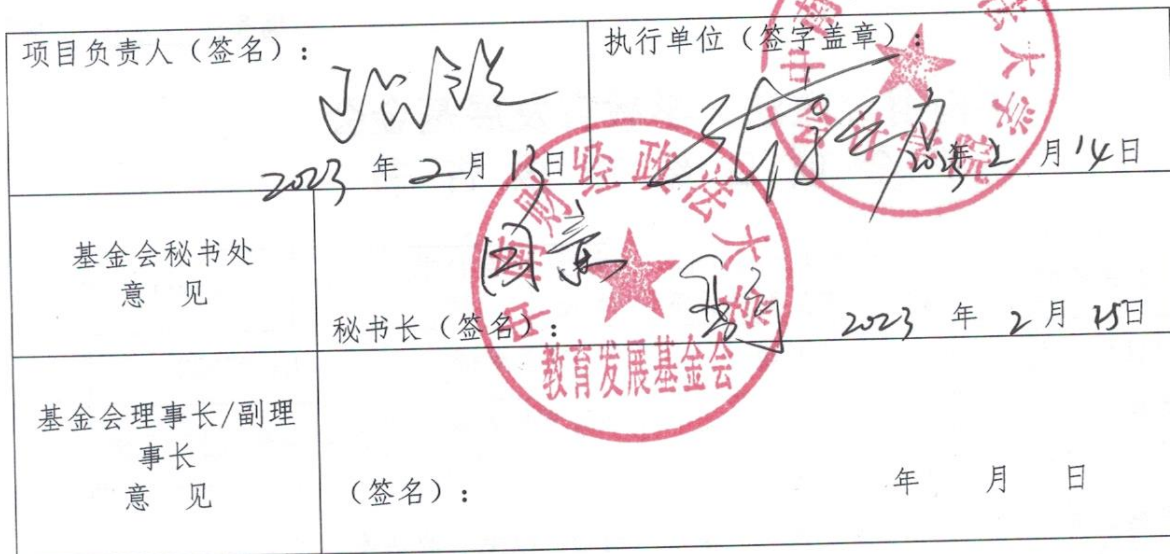 项目负责人（签名）：
2023 年 2 月 13日
执行单位（签字盖章）：
2023年 2 月 14日
法大学
会计学院
基金会秘书处
意 见
同意
秘书长（签名）：
2023 年 2 月 15日
中南财经政法大学
教育发展基金会
基金会理事长/副理
事长
意 见
（签名）：
年 月 日